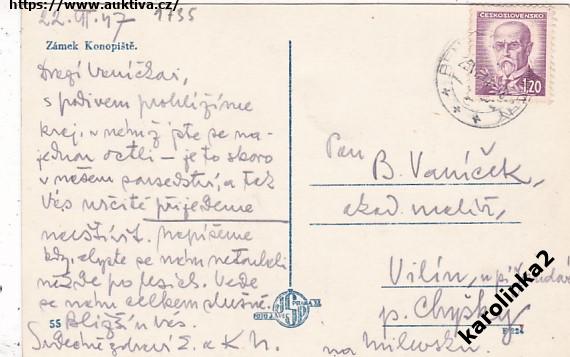 https://www.auktiva.cz/
22. VII. 47
1735
Zámek Konopiště.
ČESKOSLOVENSKO
1.20
Drazí Vaníčkovi,
s podivem prohlížíme
kraj, v němž jste se na-
jednou octli – je to skoro
v našem sousedství, a tak
Vás určitě přijedeme
navštívit. Napíšeme
kdy, abyste se nám netoulali
někde po lesích. Vede
se nám celkem slušně.
Bližší u Vás.
Srdečně zdraví E. a K. N.
Pan
B. Vaníček,
akad. malíř,
Vilín,
p. Chyšky
na Milevsku
55
karolinka2